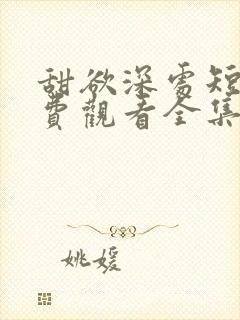 甜欲深處短
費觀看全集
姚媛